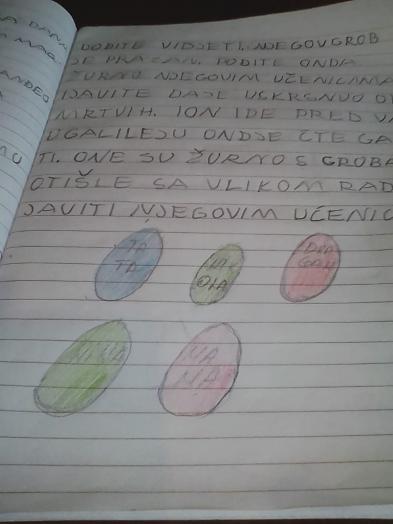 A DANA
MAG
ANĐEO
DOĐITE VIDJETI. NJEGOV GROB
JE PRAZAN. POĐITE ONDA
ŽURNO NJEGOVIM UČENICIMA
JAVITE DA JE USKRSNUO O
MRTVIH. I ON IDE PRED VA
U GALILEJU ONDJE ČTE GA
TI. ONE SU ŽURNO S GROBA
OTIŠLE SA VLIKOM RAD
JAVITI NJEGOVIM UČENIC
TA
TA
DRA
GAN
NINA
MA